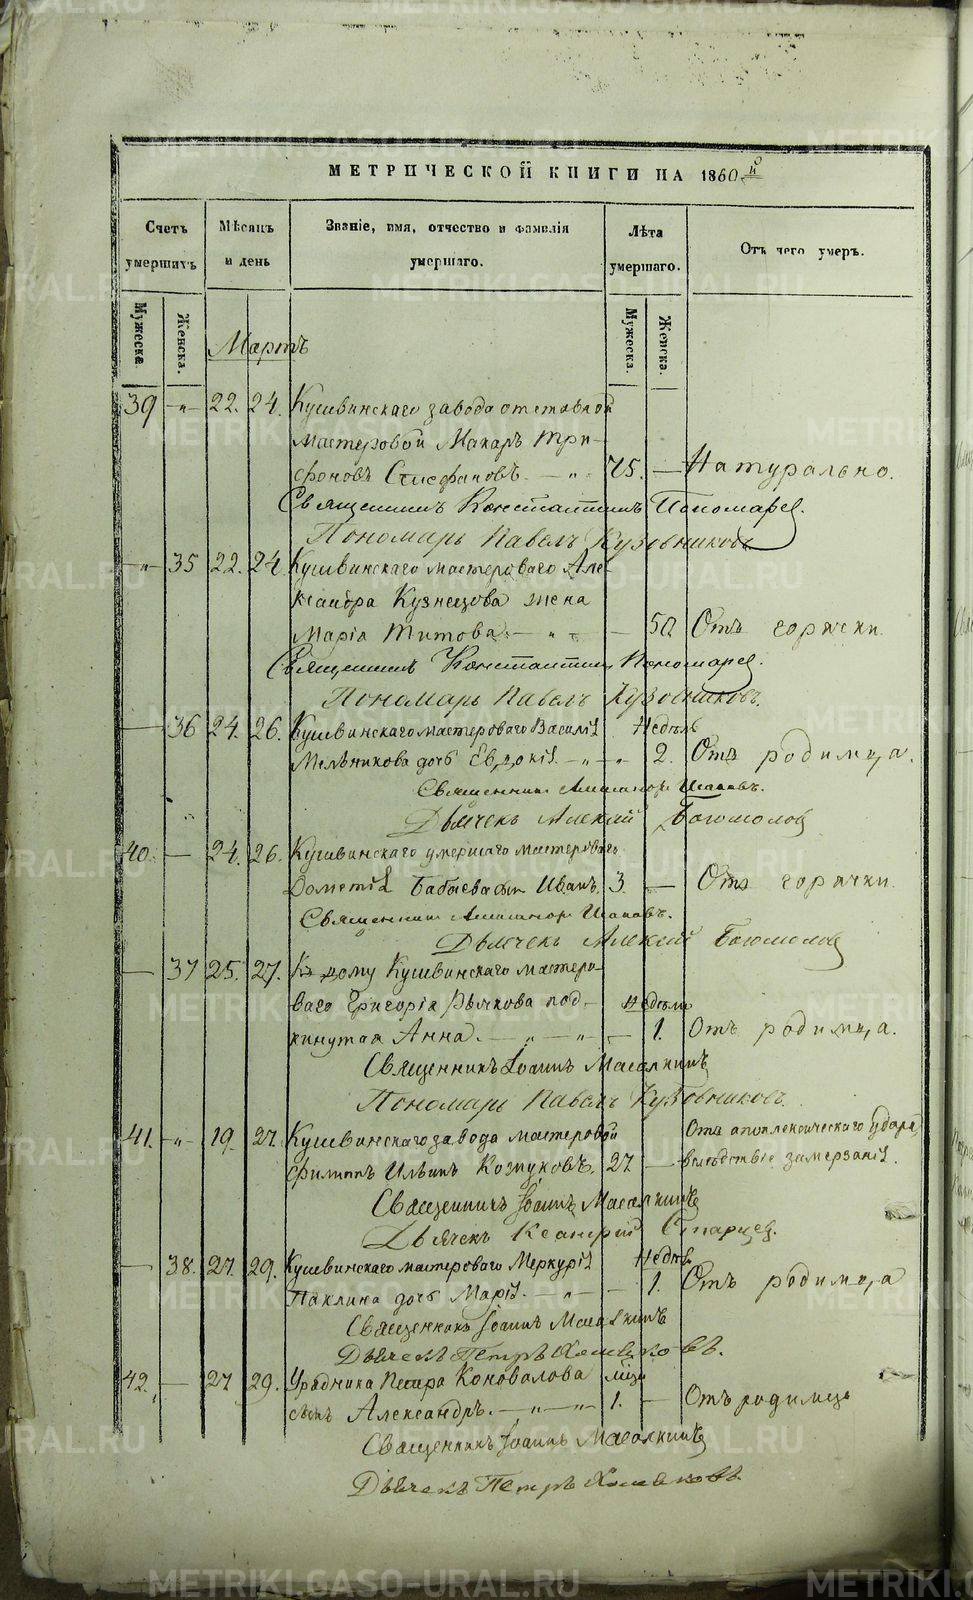 МЕТРИЧЕСКОЙ КНИГИ НА 1860й
Счетъ умершихъ
Мѣсяцъ и день
Званіе, имя, отчество и фамилія умершаго.
Лѣта умершаго.
Отъ чего умеръ.
Мужеска
Женска.
Мужеска.
Женска.
Мартъ
39 -„- 22. 24. Кушвинскаго завода отставной
мастеровой Макаръ Три-
фоновъ Стефановъ. — „ 75. — Натурально.
Священникъ Константинъ Пономаревъ.
Пономарь Павелъ Кузовниковъ
-„- 35 22. 24 Кушвинскаго мастероваго Але-
ксандра Кузнецова жена
Марія Титова. — „ — 50 Отъ горячки.
Священникъ Константинъ Пономаревъ.
Пономарь Павелъ Кузовниковъ.
— 36 24. 26. Кушвинскаго мастероваго Василія Недѣль
Мельникова дочь Евдокія. — „ — „ 2. Отъ родимца.
Священникъ Исаковъ.
Дьячекъ Алексей Богомоловъ
40. — 24. 26. Кушвинскаго умершаго мастероваго
Дометія Бабаева сынъ Иванъ. 3. — Отъ горячки.
Священникъ Исаковъ.
Дьячекъ Алексей Богомоловъ
— 37 25. 27. Къ дому Кушвинскаго мастеро-
ваго Григорія Рычкова под- недѣли
кинутая Анна. — „ — „ — 1. Отъ родимца.
Священникъ Іоаннъ Масалкинъ
Пономарь Павелъ Кузовниковъ.
41. -„- 19. 27. Кушвинскаго завода мастеровой Отъ апоплексическаго удара
Филиппъ Ильинъ Кожуховъ. 27 — вслѣдствіе замерзанія.
Священникъ Іоаннъ Масалкинъ
Дьячекъ Старцев.
— 38. 27. 29. Кушвинскаго мастероваго Меркурія Недѣль
Паклина дочь Марія. — „ — 1. Отъ родимца
Священникъ Іоаннъ Масалкинъ
Дьячекъ Петръ Хомяковъ.
42. — 27 29. Урядника Петра Коновалова мѣся
сынъ Александръ. — „ — „ 1. — Отъ родимца
Священникъ Іоаннъ Масалкинъ
Дьячекъ Петръ Хомяковъ.
METRIKI.GASO-URAL.RU